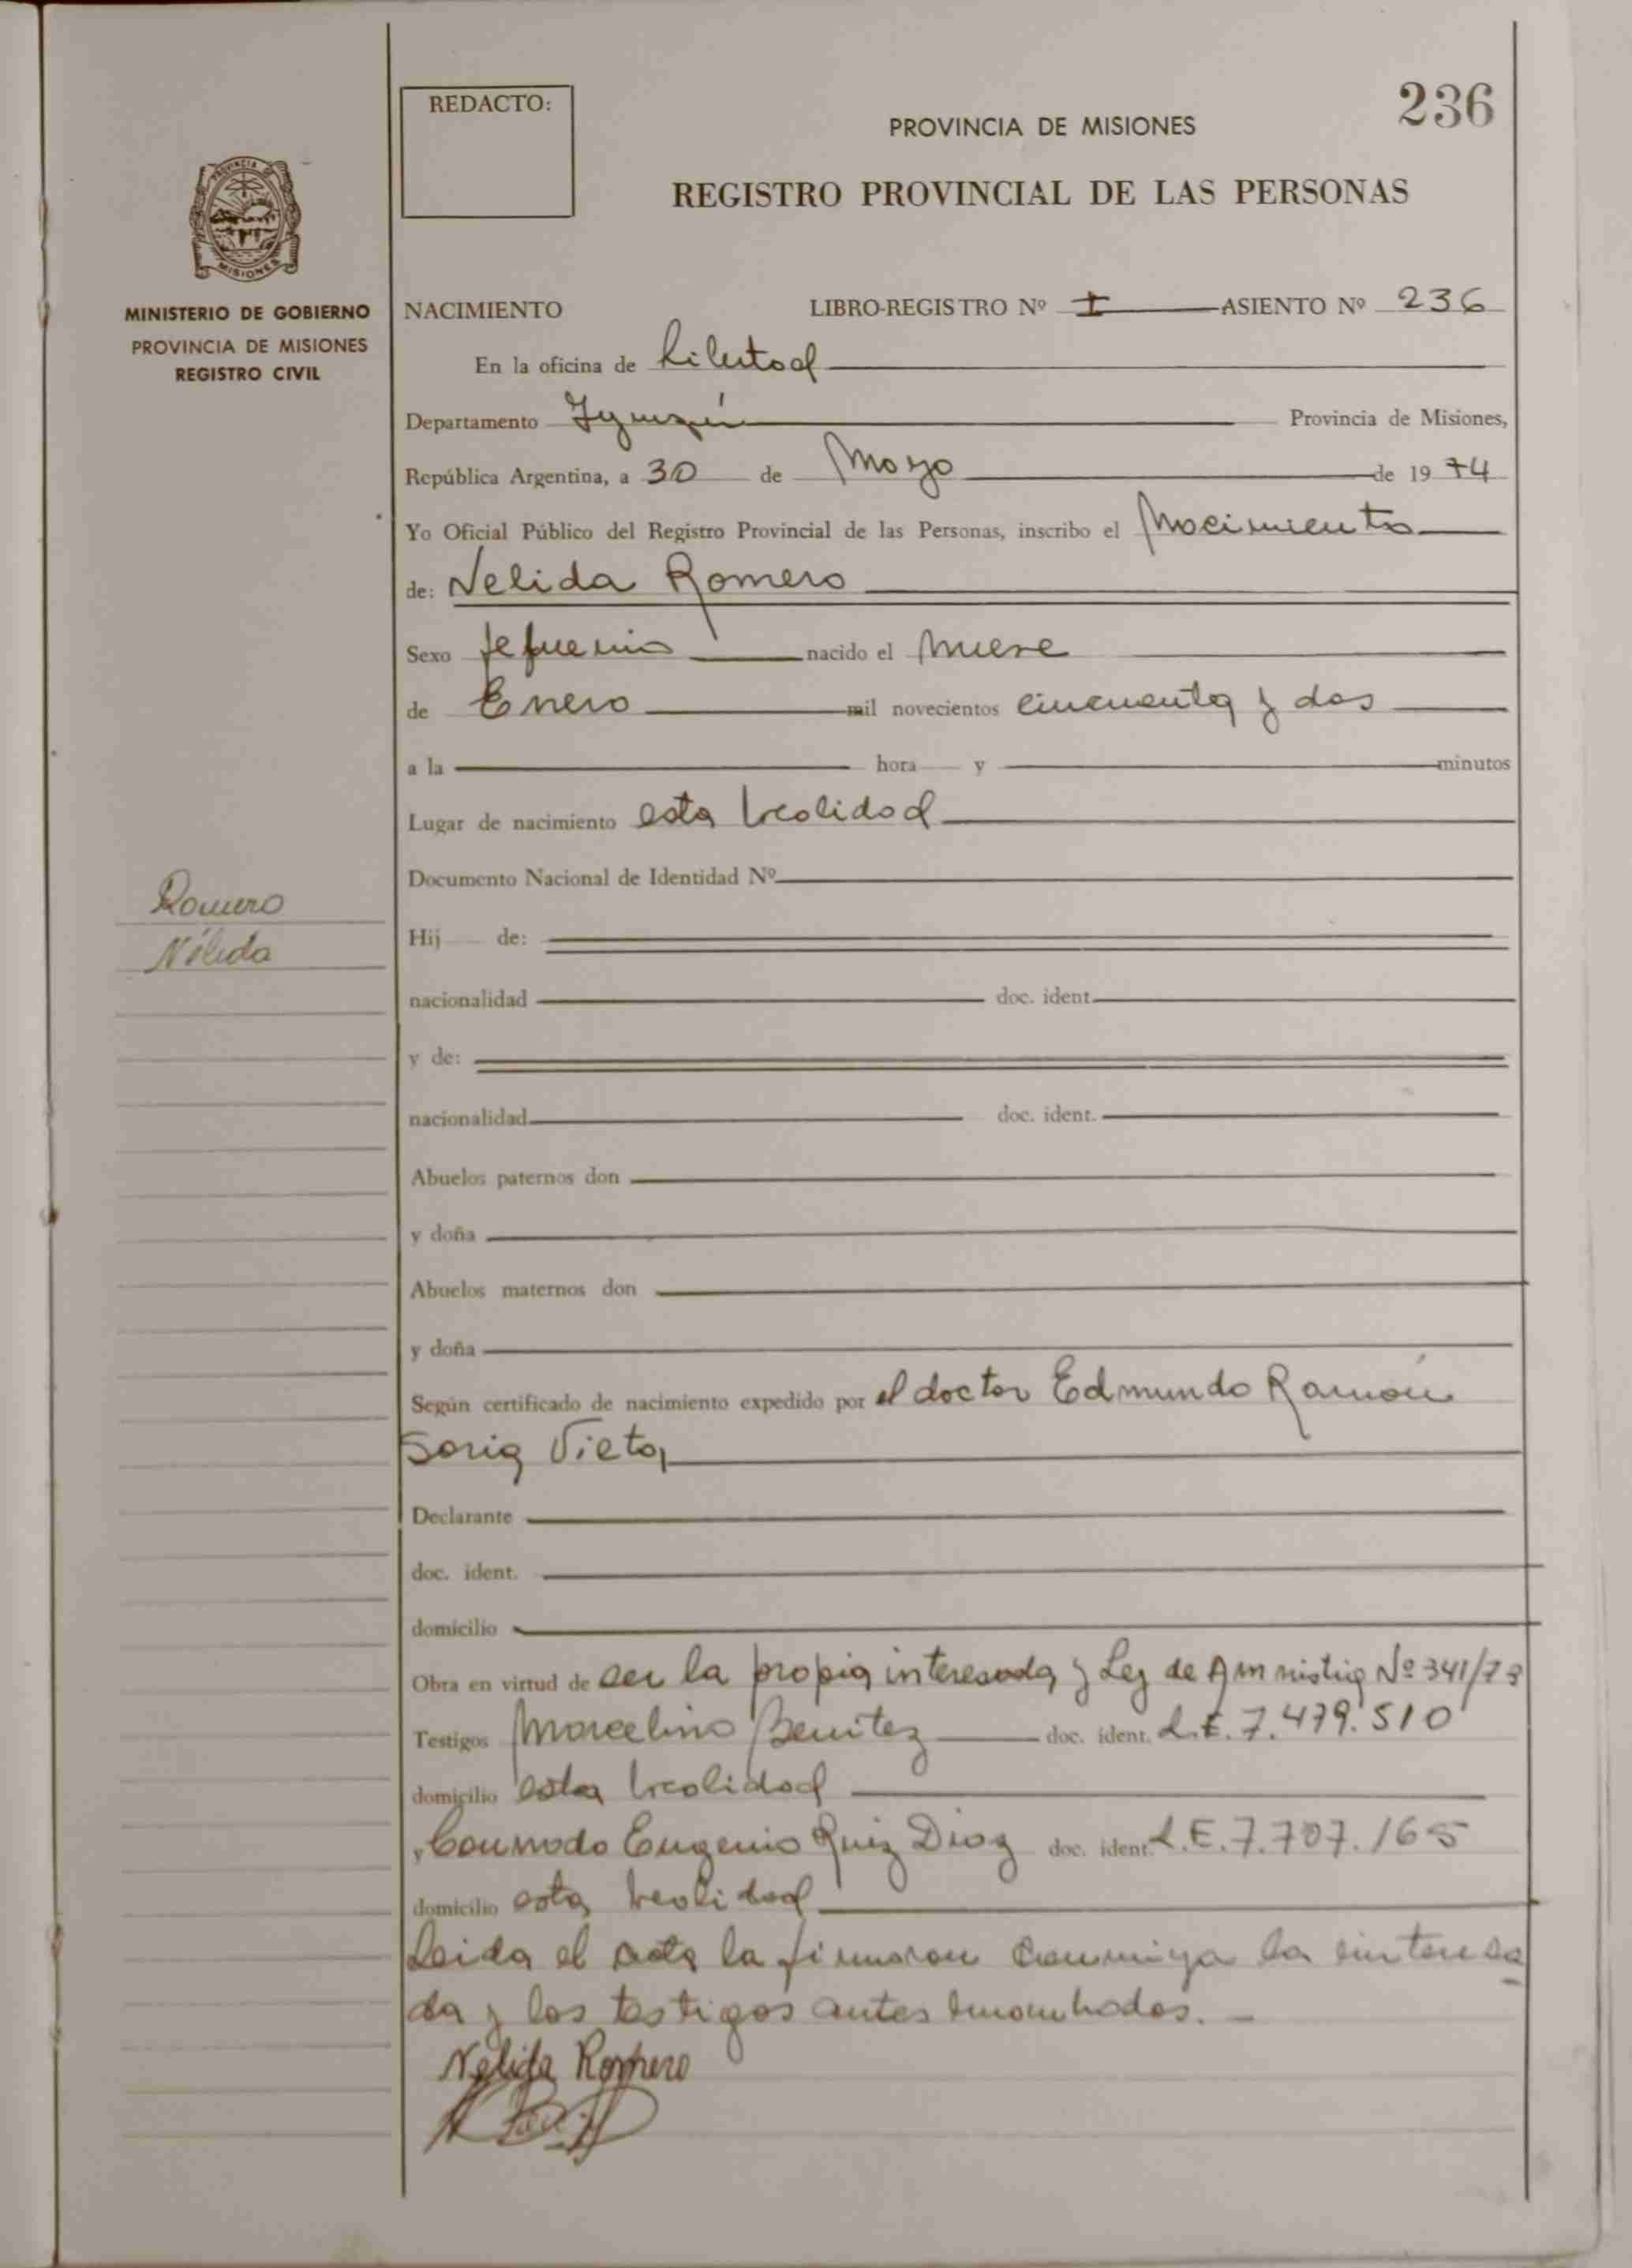 236
REDACTO:
PROVINCIA DE MISIONES
REGISTRO PROVINCIAL DE LAS PERSONAS
PROVINCIA DE
MISIONES
MINISTERIO DE GOBIERNO
PROVINCIA DE MISIONES
REGISTRO CIVIL
NACIMIENTO LIBRO-REGISTRO Nº I ASIENTO Nº 236
En la oficina de Libertad
Departamento Iguazú Provincia de Misiones,
República Argentina, a 30 de Mayo de 19 74
Yo Oficial Público del Registro Provincial de las Personas, inscribo el Nacimiento
de: Nelida Romero
Sexo femenino nacido el Nueve
de Enero mil novecientos cincuenta y dos
a la hora y minutos
Lugar de nacimiento esta localidad
Documento Nacional de Identidad Nº
Romero
Nélida
Hij de:
nacionalidad doc. ident.
y de:
nacionalidad doc. ident.
Abuelos paternos don
y doña
Abuelos maternos don
y doña
Según certificado de nacimiento expedido por el doctor Edmundo Ramón
Soria Vieta
Declarante
doc. ident.
domicilio
Obra en virtud de ser la propia interesada y Ley de Amnistia Nº 341/73
Testigos Marcelino Benitez doc. ident. L.E. 7.479.510
domicilio esta localidad
y Eugenio Ruiz Diaz doc. ident. L.E. 7.707.165
domicilio esta localidad
Leida el acta la firmaron conmigo la interesa
da y los testigos antes nombrados.
Nélida Romero